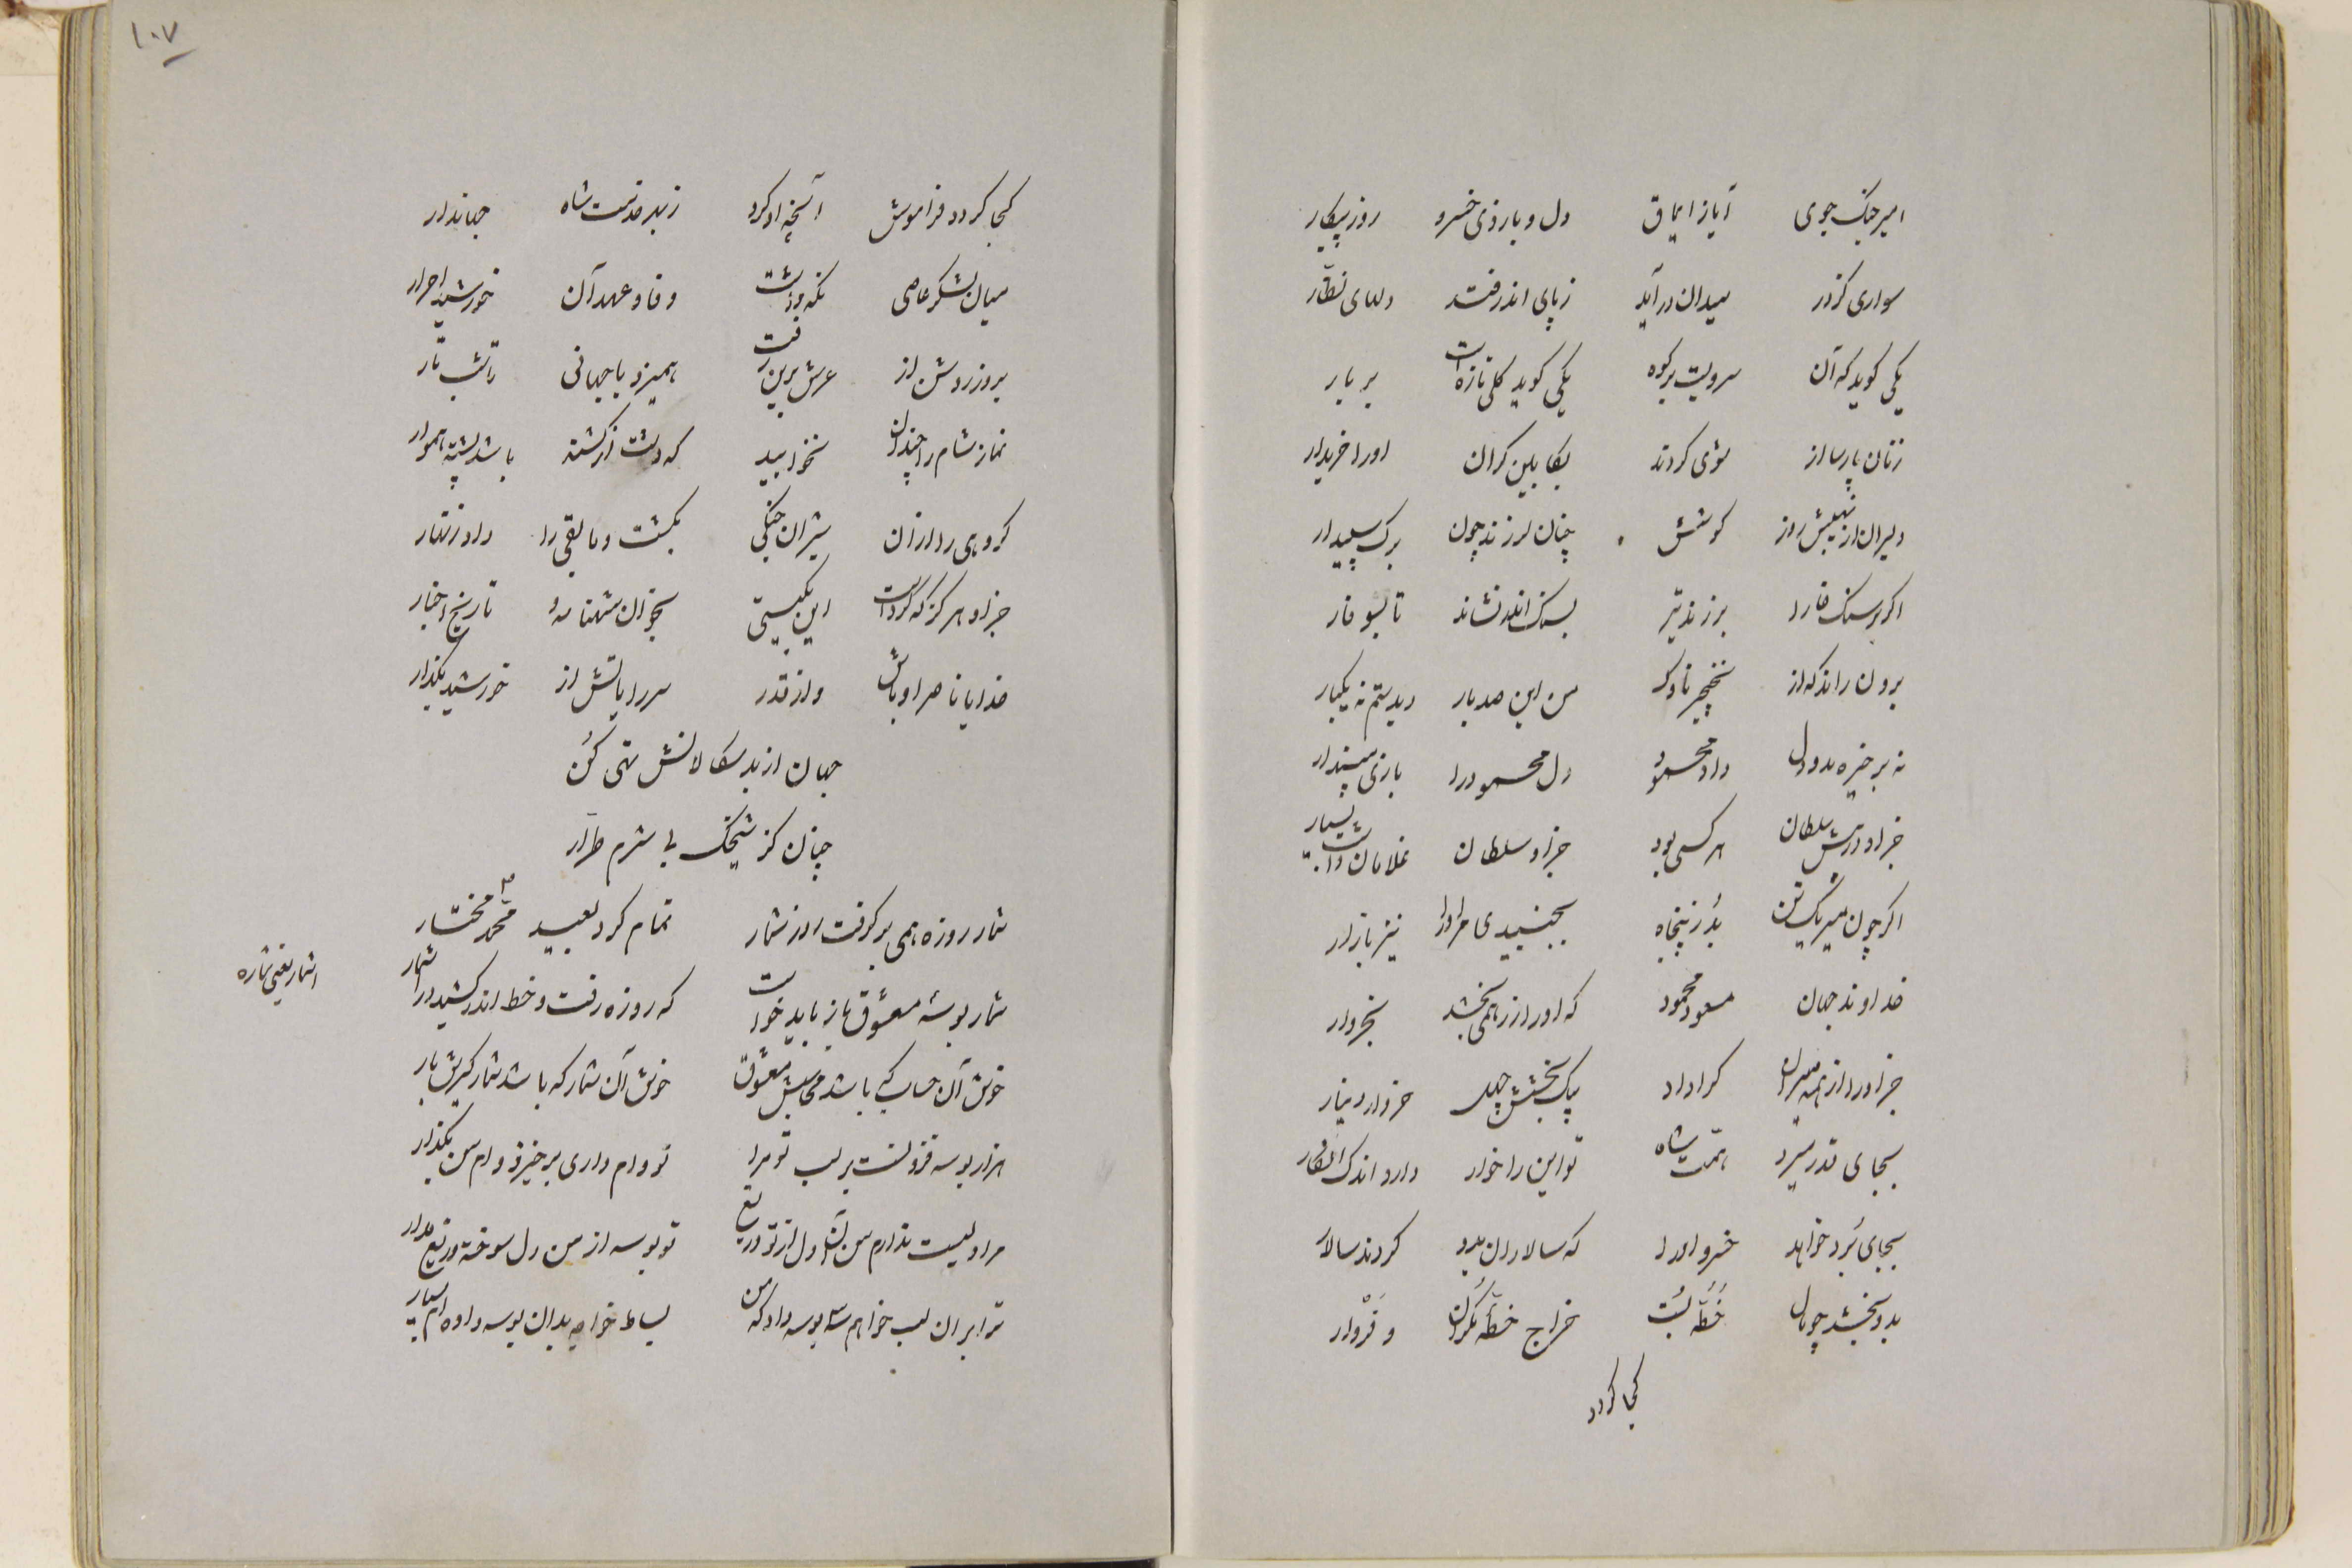 امیر جنک جوی ایاز ایماق دل و بازوی خسرو روز پیکار
سواری کز در میدان درآید ز پای اندر فتد دلهای نظار
یکی کوید که آن سرویست بر کوه یکی کوید کلی تازه است بر بار
زنان پارسا از شوی کردند بکابین کران او را خریدار
دلیران از نهیبش روز کوشش چنان لرزند چون برک سپیدار
اکر بر سنک خارا بر زند تیر بسنک اندر نشاند تا بسوفار
برون راند که از نخچیر ناوک من این صد بار دیدستم نه یکبار
نه بر خیره بدو دل داد محمود دل محمود را بازی مپندار
جز او در پیش سلطان هر کسی بود جز او سلطان غلامان داشت بسیار
اکر چون میر یک تن بد ز پنجاه بجنبیدی مر او را نیز بازار
خداوند جهان مسعود محمود که او را زر همی بخشد بخروار
جز او را از همه میران کرا داد بیک بخشش چهل خروار دینار
بجای قدر میر و همت شاه تو این را خوار دار و اندک انکار
بجای نبرد خواهد خسرو او را که سالاران بدو کردند سالار
بدو بخشید چو مال خطه بست خراج خطه مکران و قزدار
کجا کردد
۱۰۷
کجا کردد فراموش آنچه او کرد ز بهر خدمت شاه جهاندار
میان لشکر عاصی نکه داشت وفا و عهد آن خورشید احرار
بروز روشن از عرش برین رفت همیزد با جهانی تا شب تار
نماز شام را چندان نخوابید که دشت از کشته باشد پشته هموار
کروهی را از آن شیران جنکی بکشت و مابقی را داد زنهار
جز او هرکز که کردست این بکیتی بخوان شهنامه و تاریخ اخبار
خدایا ناصر او باش و از قدر سر رایاتش از خورشید بکذار
جهان از بدسکالانش تهی کن
چنان کز شیخک بی شرم طرار
شمار روزه همی برکرفت روز شمار تمام کرد بعید محمد مختار
شمار بوسه معشوق باز باید خواست که روزه رفت و خط اندر کشید در اشمار
اشمار یعنی شماره
خوش آن حساب که باشد محاسبش معشوق خوش آن شمار که باشد شمار کیرش یار
هزار بوسه فزونست بر لب تو مرا تو وام داری برخیز و وام من بکذار
مرا دلیست ندارم من آن دل از تو دریغ تو بوسه از من دل سوخته دریغ مدار
ترا بر آن لب خواهم سه بوسه داد که من بساط خواجه بدان بوسه داده ام بسیار